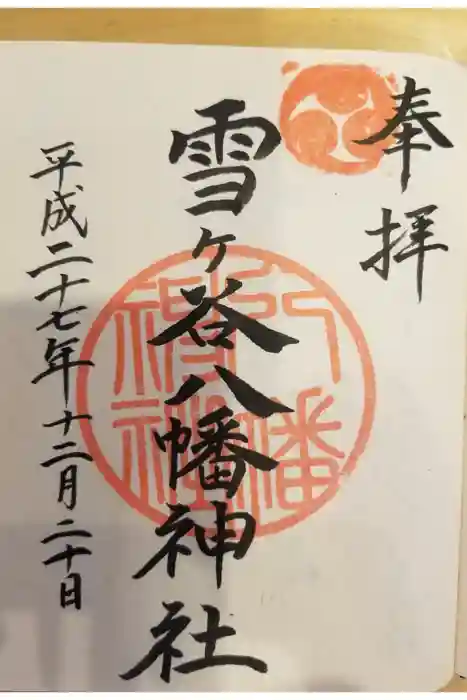 奉拝
雪ヶ谷八幡神社
八幡神社
平成二十七年十二月二十日